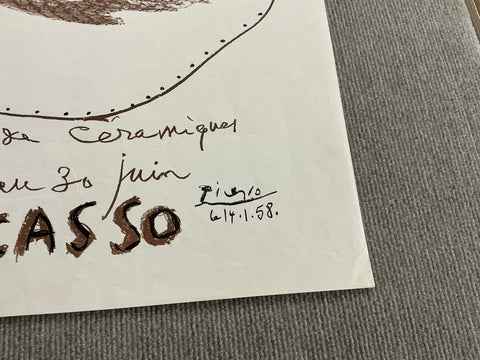 de Céramiques
au 30 juin
CASSO
Picasso
le 14.1.58.